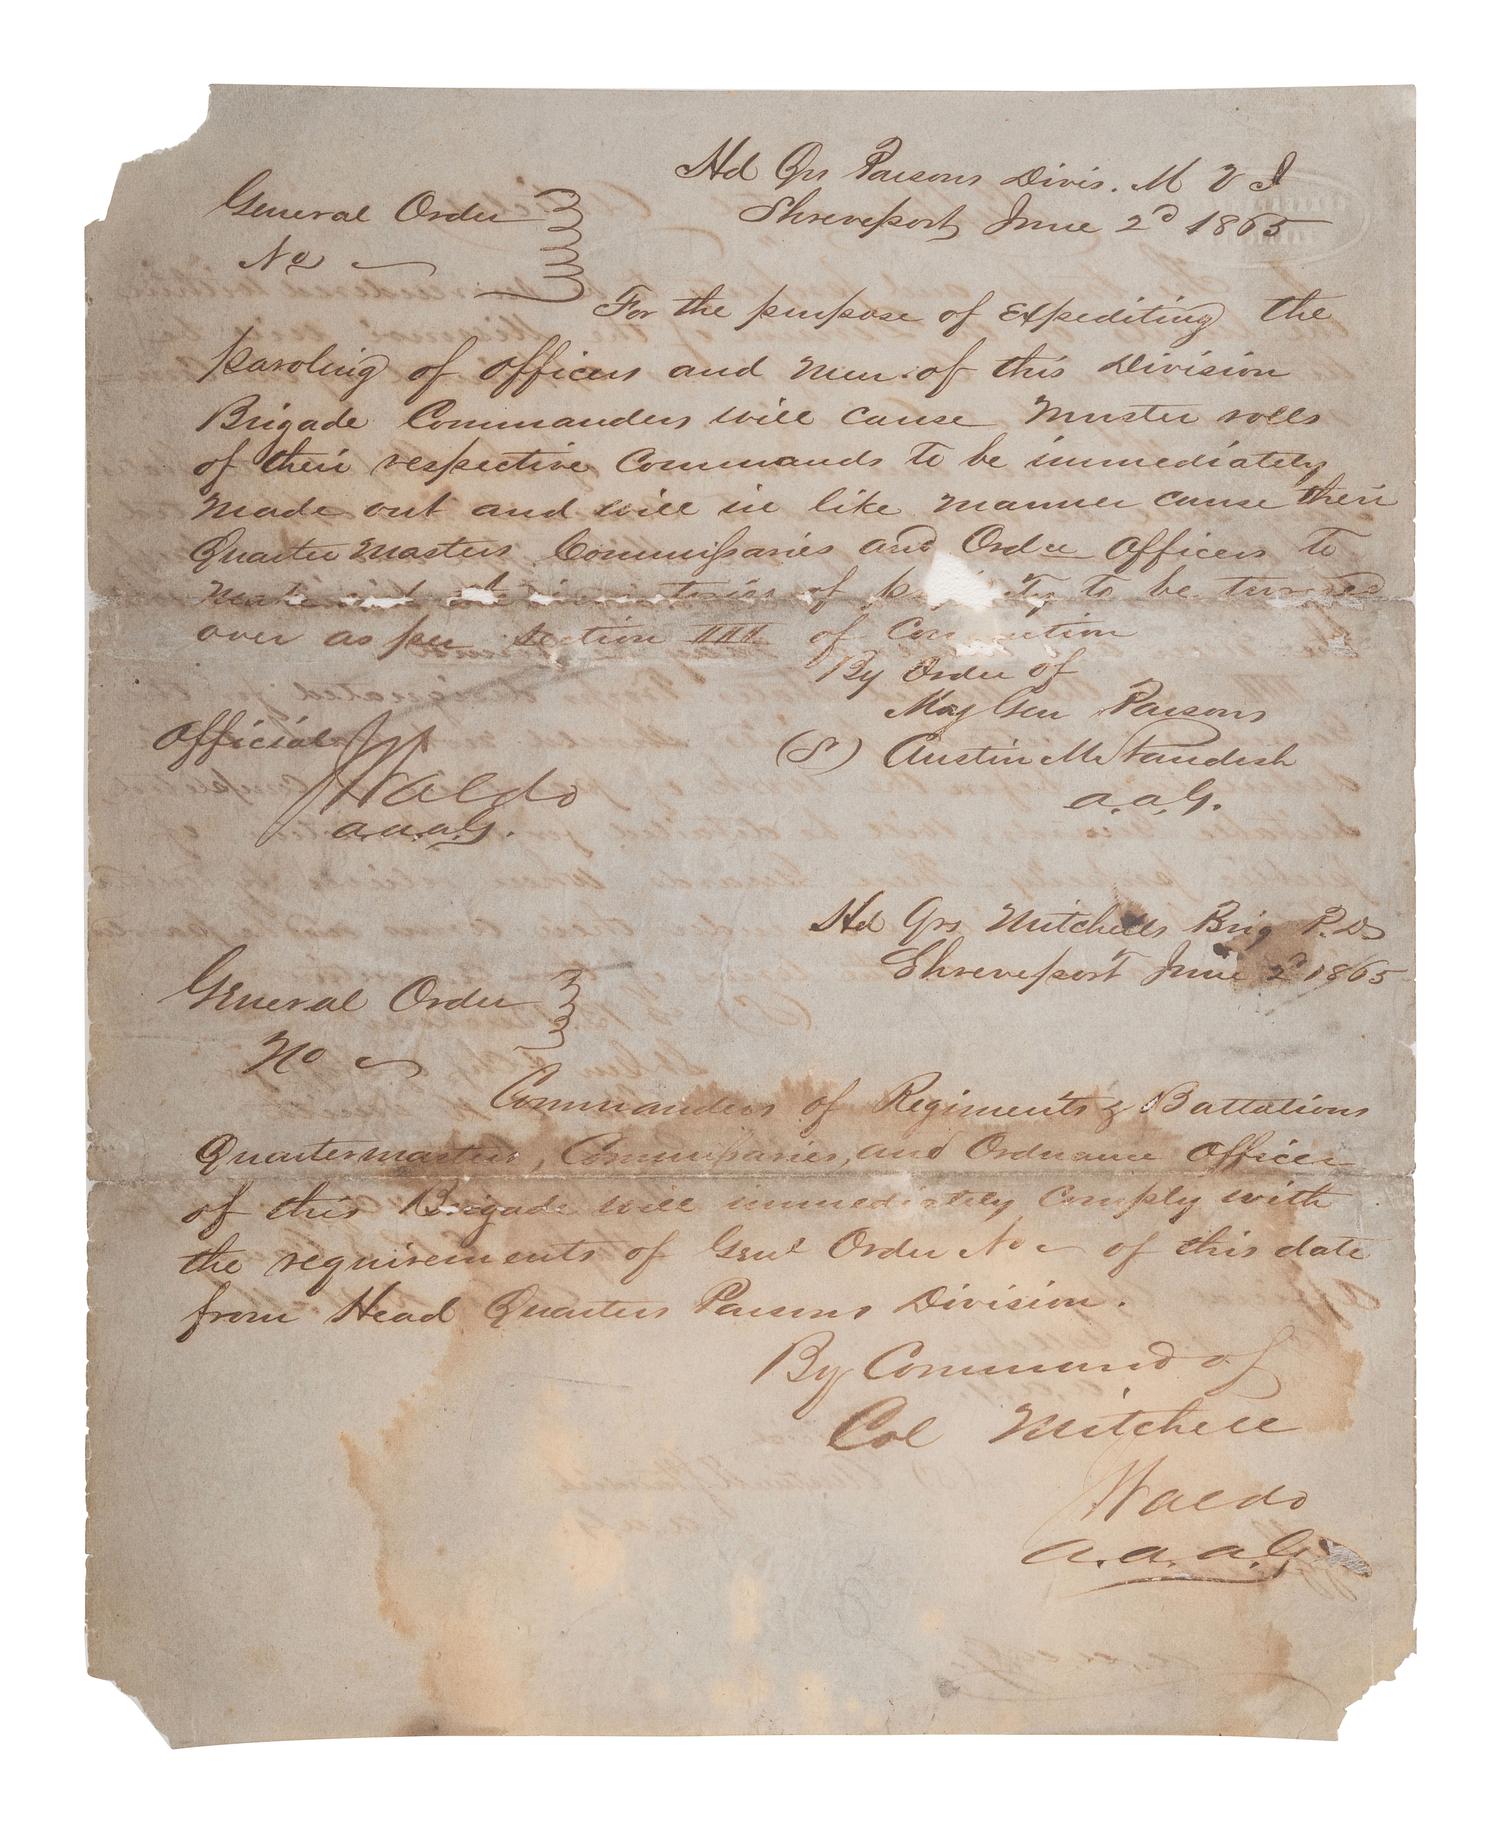 Hd Qrs Parsons Divis. M V I
Shreveport June 2d 1865
General Order
No
For the purpose of Expediting the
paroling of officers and Men of this Division
Brigade Commanders will cause Muster rolls
of their respective Commands to be immediately
Made out and will in like manner cause their
Quarter Masters Commissaries and Ord officers to
Make out inventories of to be turned
over as per section IIII of
By Order of
Maj Gen Parsons
(S) Austin M Standish
a.a.G.
Official
Waldo
a.a.a.G.
Hd Qrs Mitchells Brig P.D
Shreveport June 2d 1865
General Order
No
Commanders of Regiments & Battalions
Quartermasters, Commissaries, and Ordnance Officers
of this Brigade will immediately Comply with
the requirements of Genl Order No of this date
from Head Quarters Parsons Division.
By Command of
Col Mitchell
Waldo
a.a.a.G.